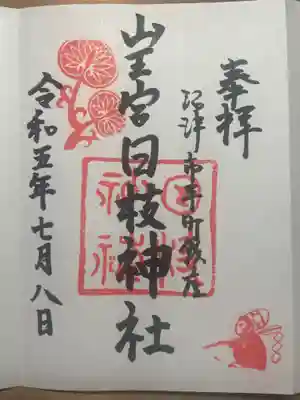 奉拝
沼津市平町鎮座
山王宮日枝神社
日枝
神社
令和五年七月八日